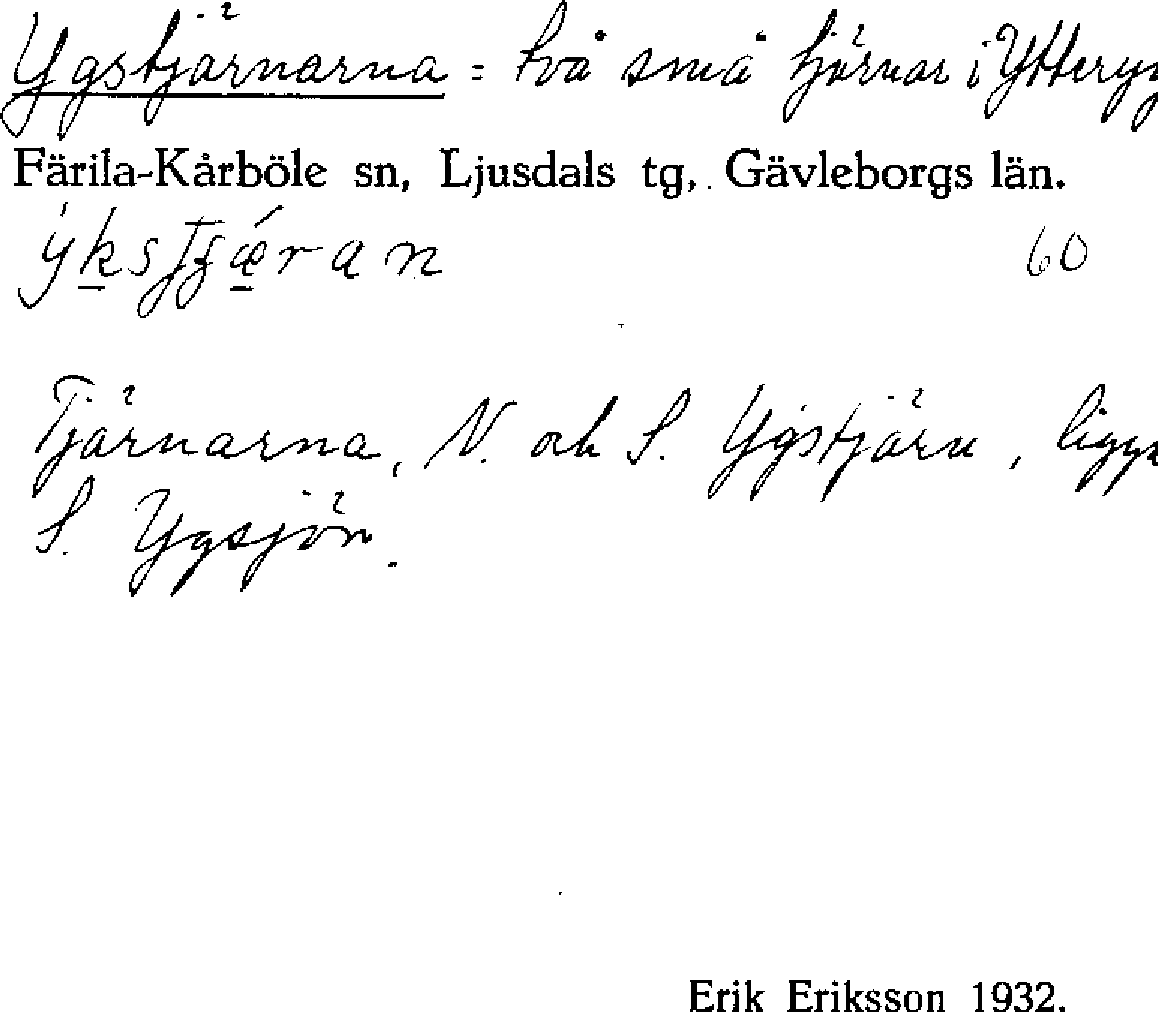 Ygstjärnarna = två små tjärnar i Ytteryg
Färila-Kårböle sn, Ljusdals tg, Gävleborgs län.
60
Tjärnarna, N. och S. Ygstjärn, ligge
S. Ygsjön.
Erik Eriksson 1932.